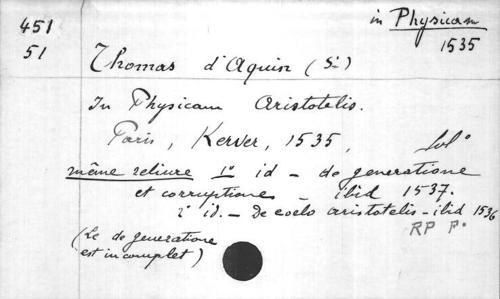 451
51
in Physicam
1535
Thomas d'Aquin (St)
In Physicam Aristotelis.
Paris, Kerver, 1535, fol°
même reliure 1° id - de generatione
et corruptione - ibid 1537.
2° id. - De coelo aristotelis - ibid 1536
(Le de generatione
est incomplet)
RP F°